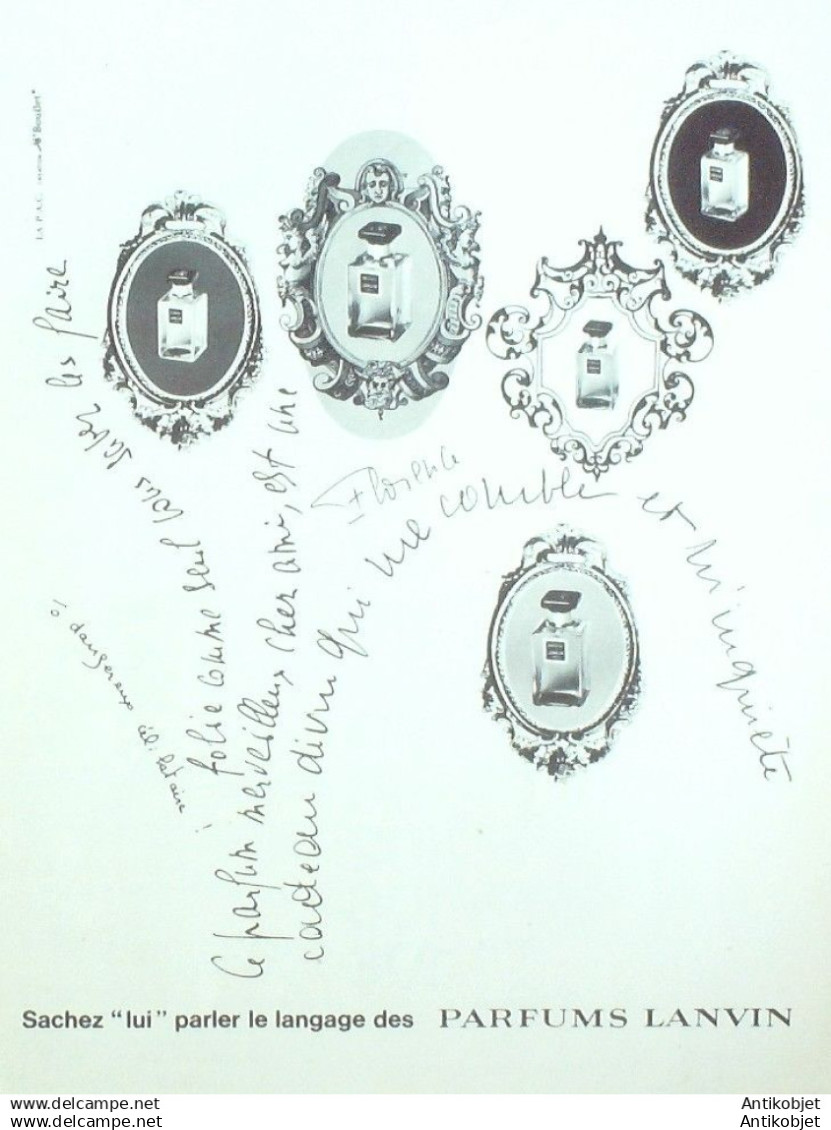 LA P.A.C.
Ce parfum merveilleux cher ami, est une
folie comme seul vous savez les faire
cadeau divin qui me comble et m'inquiète
Florence
ô dangereux célibataire !
Sachez "lui" parler le langage des PARFUMS LANVIN
www.delcampe.net
Antikobjet
www.delcampe.net
Antikobjet